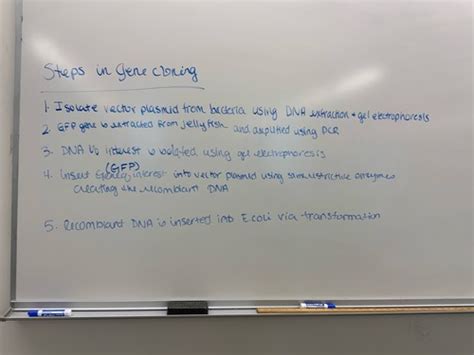 Steps in Gene cloning
1. Isolate vector plasmid from bacteria using DNA extraction + gel electrophoresis
2. GFP gene is extracted from jellyfish and amplified using PCR
3. DNA of interest is isolated using gel electrophoresis
(GFP)
4. Insert gene of interest into vector plasmid using same restrictive enzymes
creating the recombiant DNA
5. Recombiant DNA is inserted into E.coli via transformation